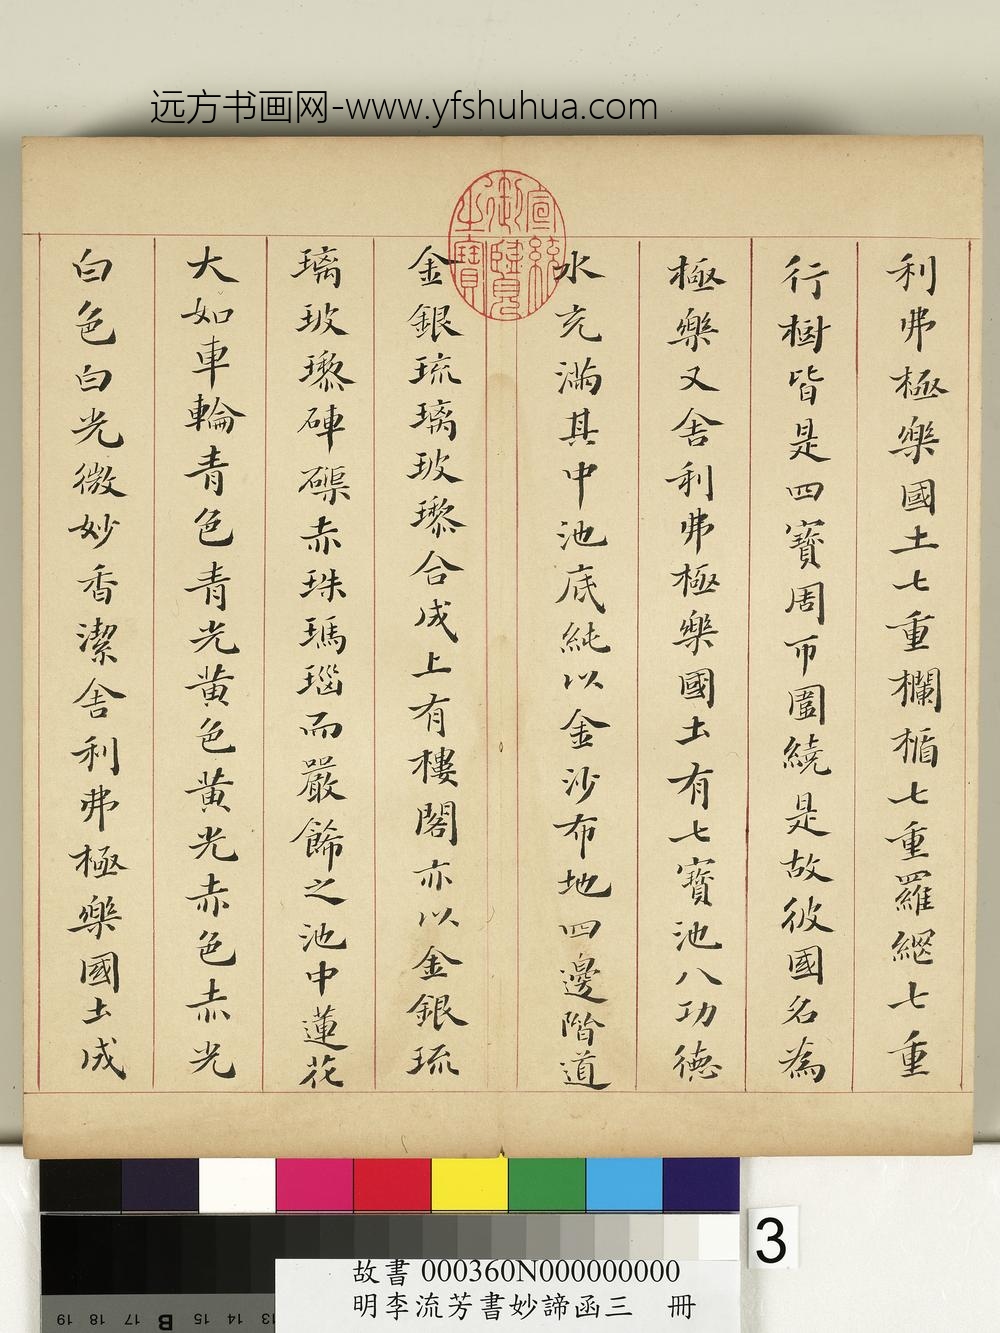 远方书画网-www.yfshuhua.com
宣統
御覽
之寶
利弗極樂國土七重欄楯七重羅網七重
行樹皆是四寶周帀圍繞是故彼國名為
極樂又舍利弗極樂國土有七寶池八功德
水充滿其中池底純以金沙布地四邊階道
金銀琉璃玻瓈合成上有樓閣亦以金銀琉
璃玻瓈硨磲赤珠瑪瑙而嚴飾之池中蓮花
大如車輪青色青光黃色黃光赤色赤光
白色白光微妙香潔舍利弗極樂國土成
3
故書 000360N000000000
明李流芳書妙諦函三 冊
19 18 17 B 15 14 13